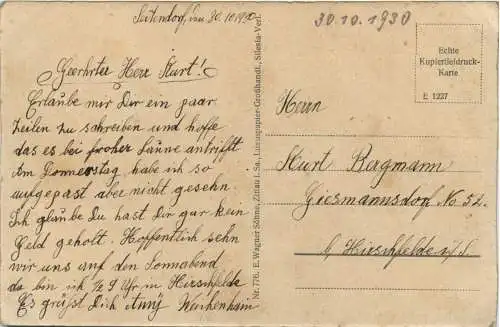 Seitendorf, den 30.10.1930
30.10.1930
Geerhrter Herr Kurt!
Erlaube mir Dir ein paar
Zeilen zu schreiben und hoffe
das es bei froher Laune antrifft
Am Donnerstag habe ich so
aufgepast aber nicht gesehn.
Ich glaube Du hast Dir gar kein
Geld geholt. Hoffentlich sehn
wir uns auf den Sonnabend
da bin ich ½ 9 Uhr in Hirschfelde
Es grüßt Dich Anny
Nr. 776. E. Wagner Söhne, Zittau i. Sa., Luxuspapier-Großhandl., Silesia-Verl.
Echte
Kupfertiefdruck-
Karte
E 1227
Herrn
Kurt Bergmann
Giesmannsdorf No 52.
b/ Hirschfelde i/S.